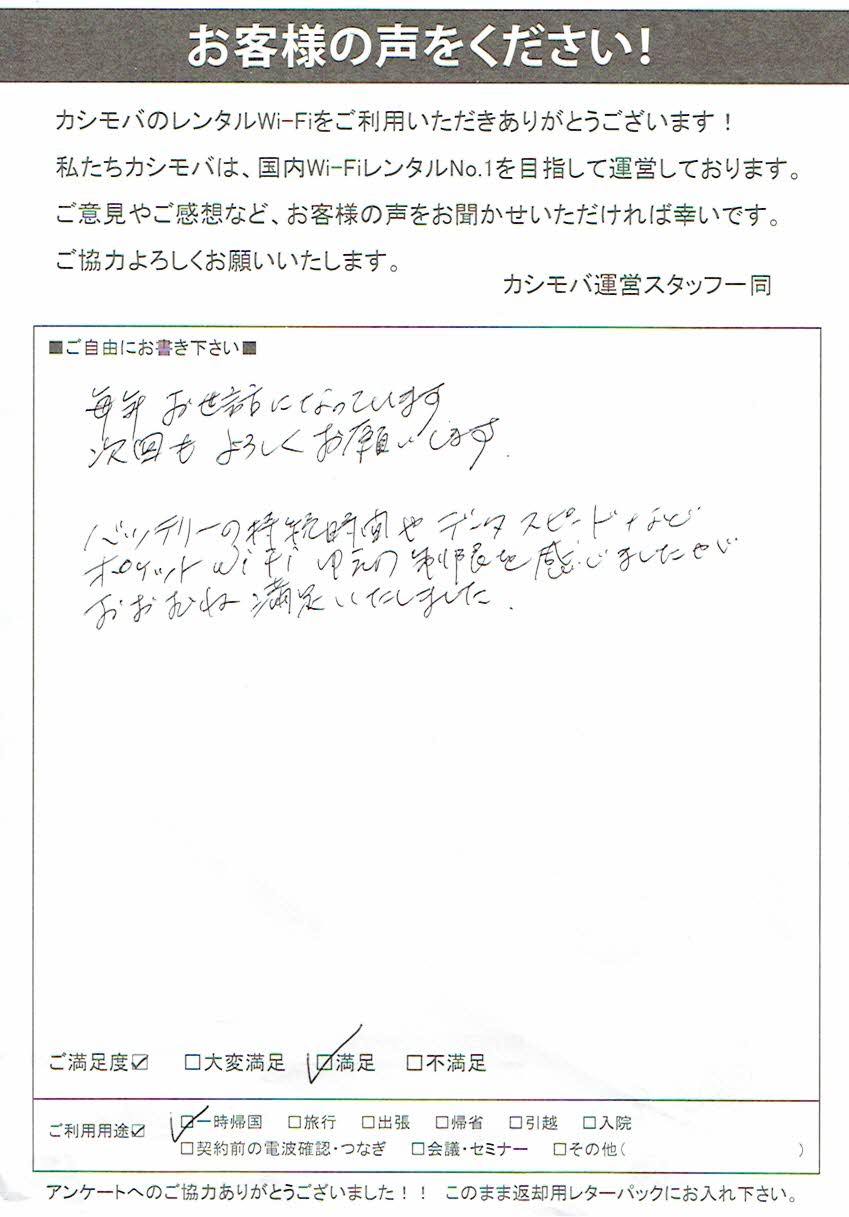 お客様の声をください!
カシモバのレンタルWi-Fiをご利用いただきありがとうございます!
私たちカシモバは、国内Wi-FiレンタルNo.1を目指して運営しております。
ご意見やご感想など、お客様の声をお聞かせいただければ幸いです。
ご協力よろしくお願いいたします。
カシモバ運営スタッフ一同
■ご自由にお書き下さい■
毎年 お世話になっています
次回も よろしくお願いします.
バッテリーの持続時間や データスピードなど
ポケット WiFi ゆえの制限を感じましたが
おおむね 満足いたしました.
ご満足度☑ □大変満足 ☑満足 □不満足
ご利用用途☑ ☑一時帰国 □旅行 □出張 □帰省 □引越 □入院
□契約前の電波確認・つなぎ □会議・セミナー □その他( )
アンケートへのご協力ありがとうございました!! このまま返却用レターパックにお入れ下さい。